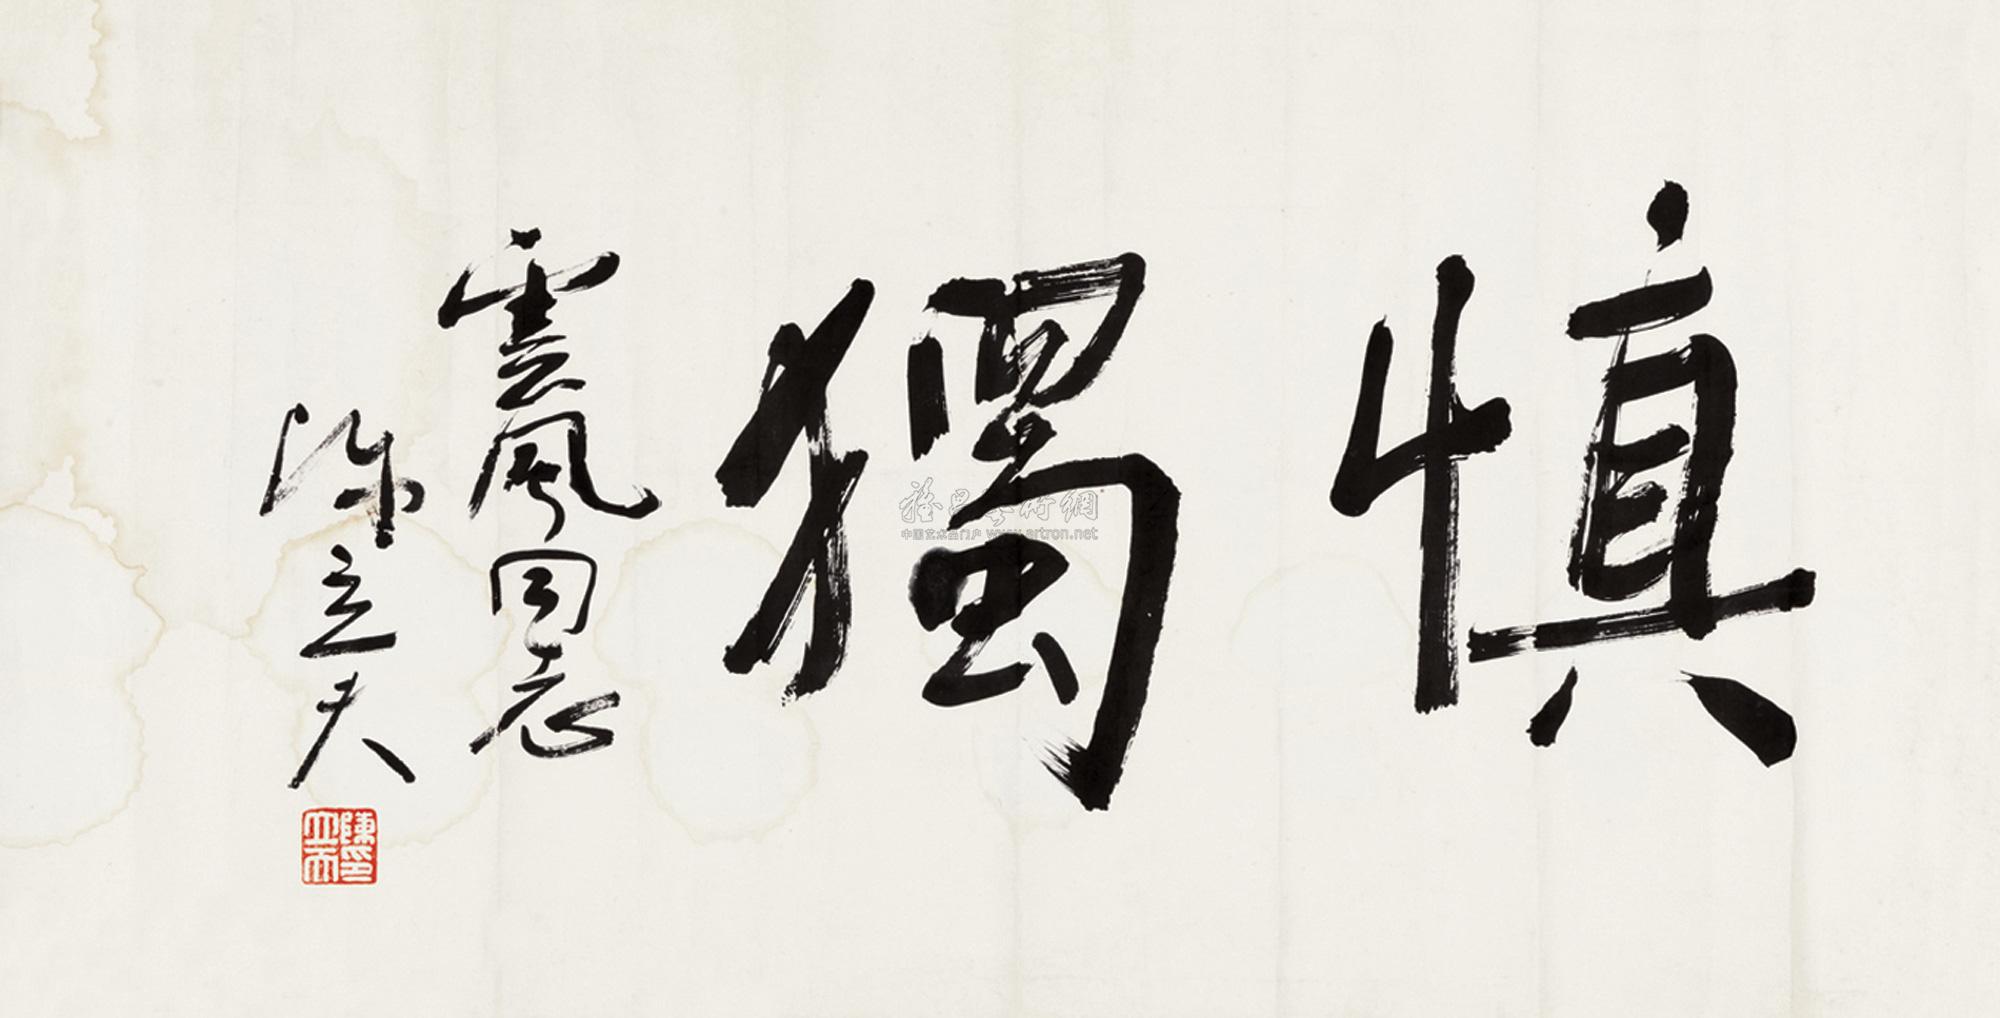 慎獨
雲風同志
陳立夫
陳立夫印
雅昌藝術網
中国艺术品门户 www.artron.net